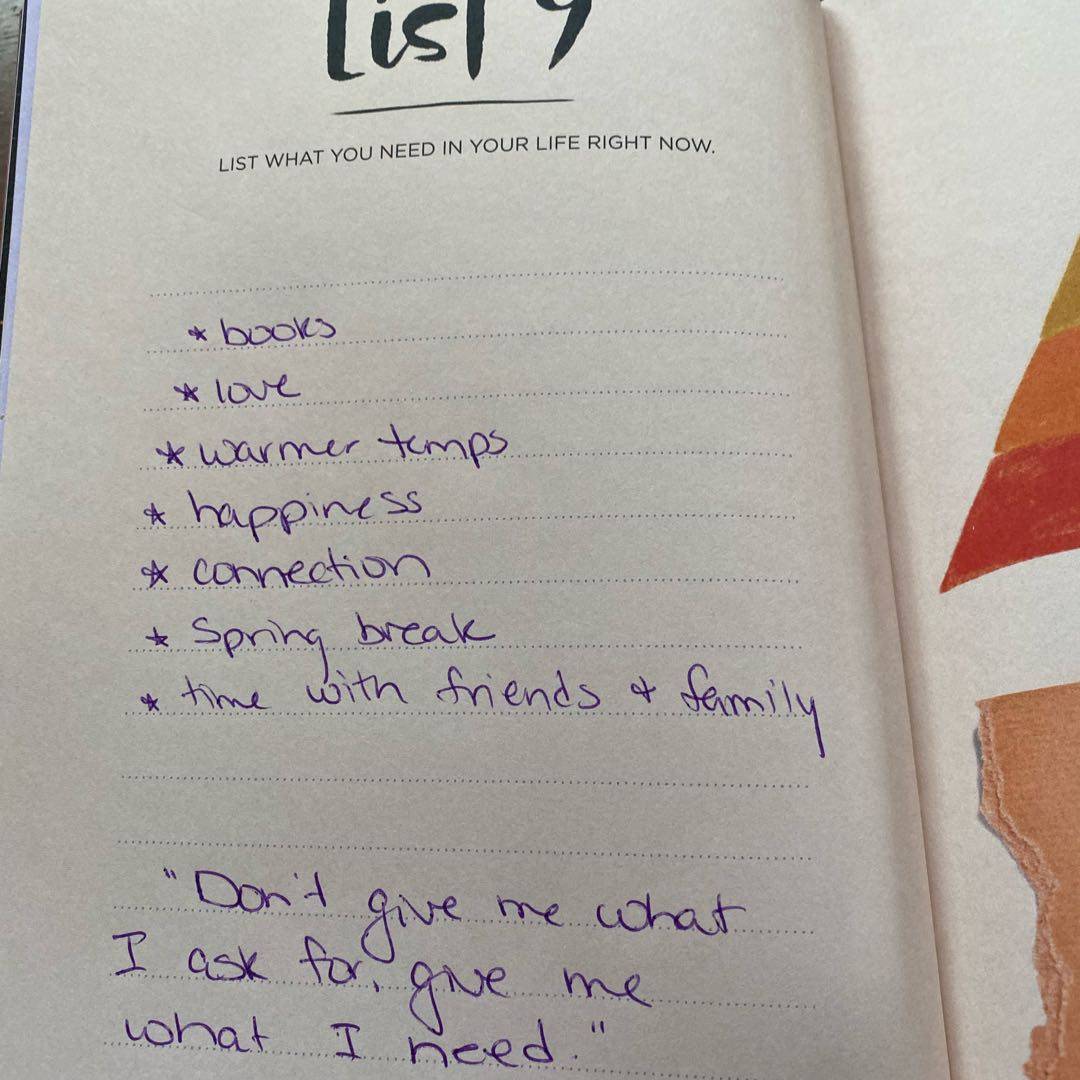 List 9
LIST WHAT YOU NEED IN YOUR LIFE RIGHT NOW.
* books
* love
* warmer temps
* happiness
* connection
* Spring break
* time with friends & family
"Don't give me what
I ask for, give me
what I need."